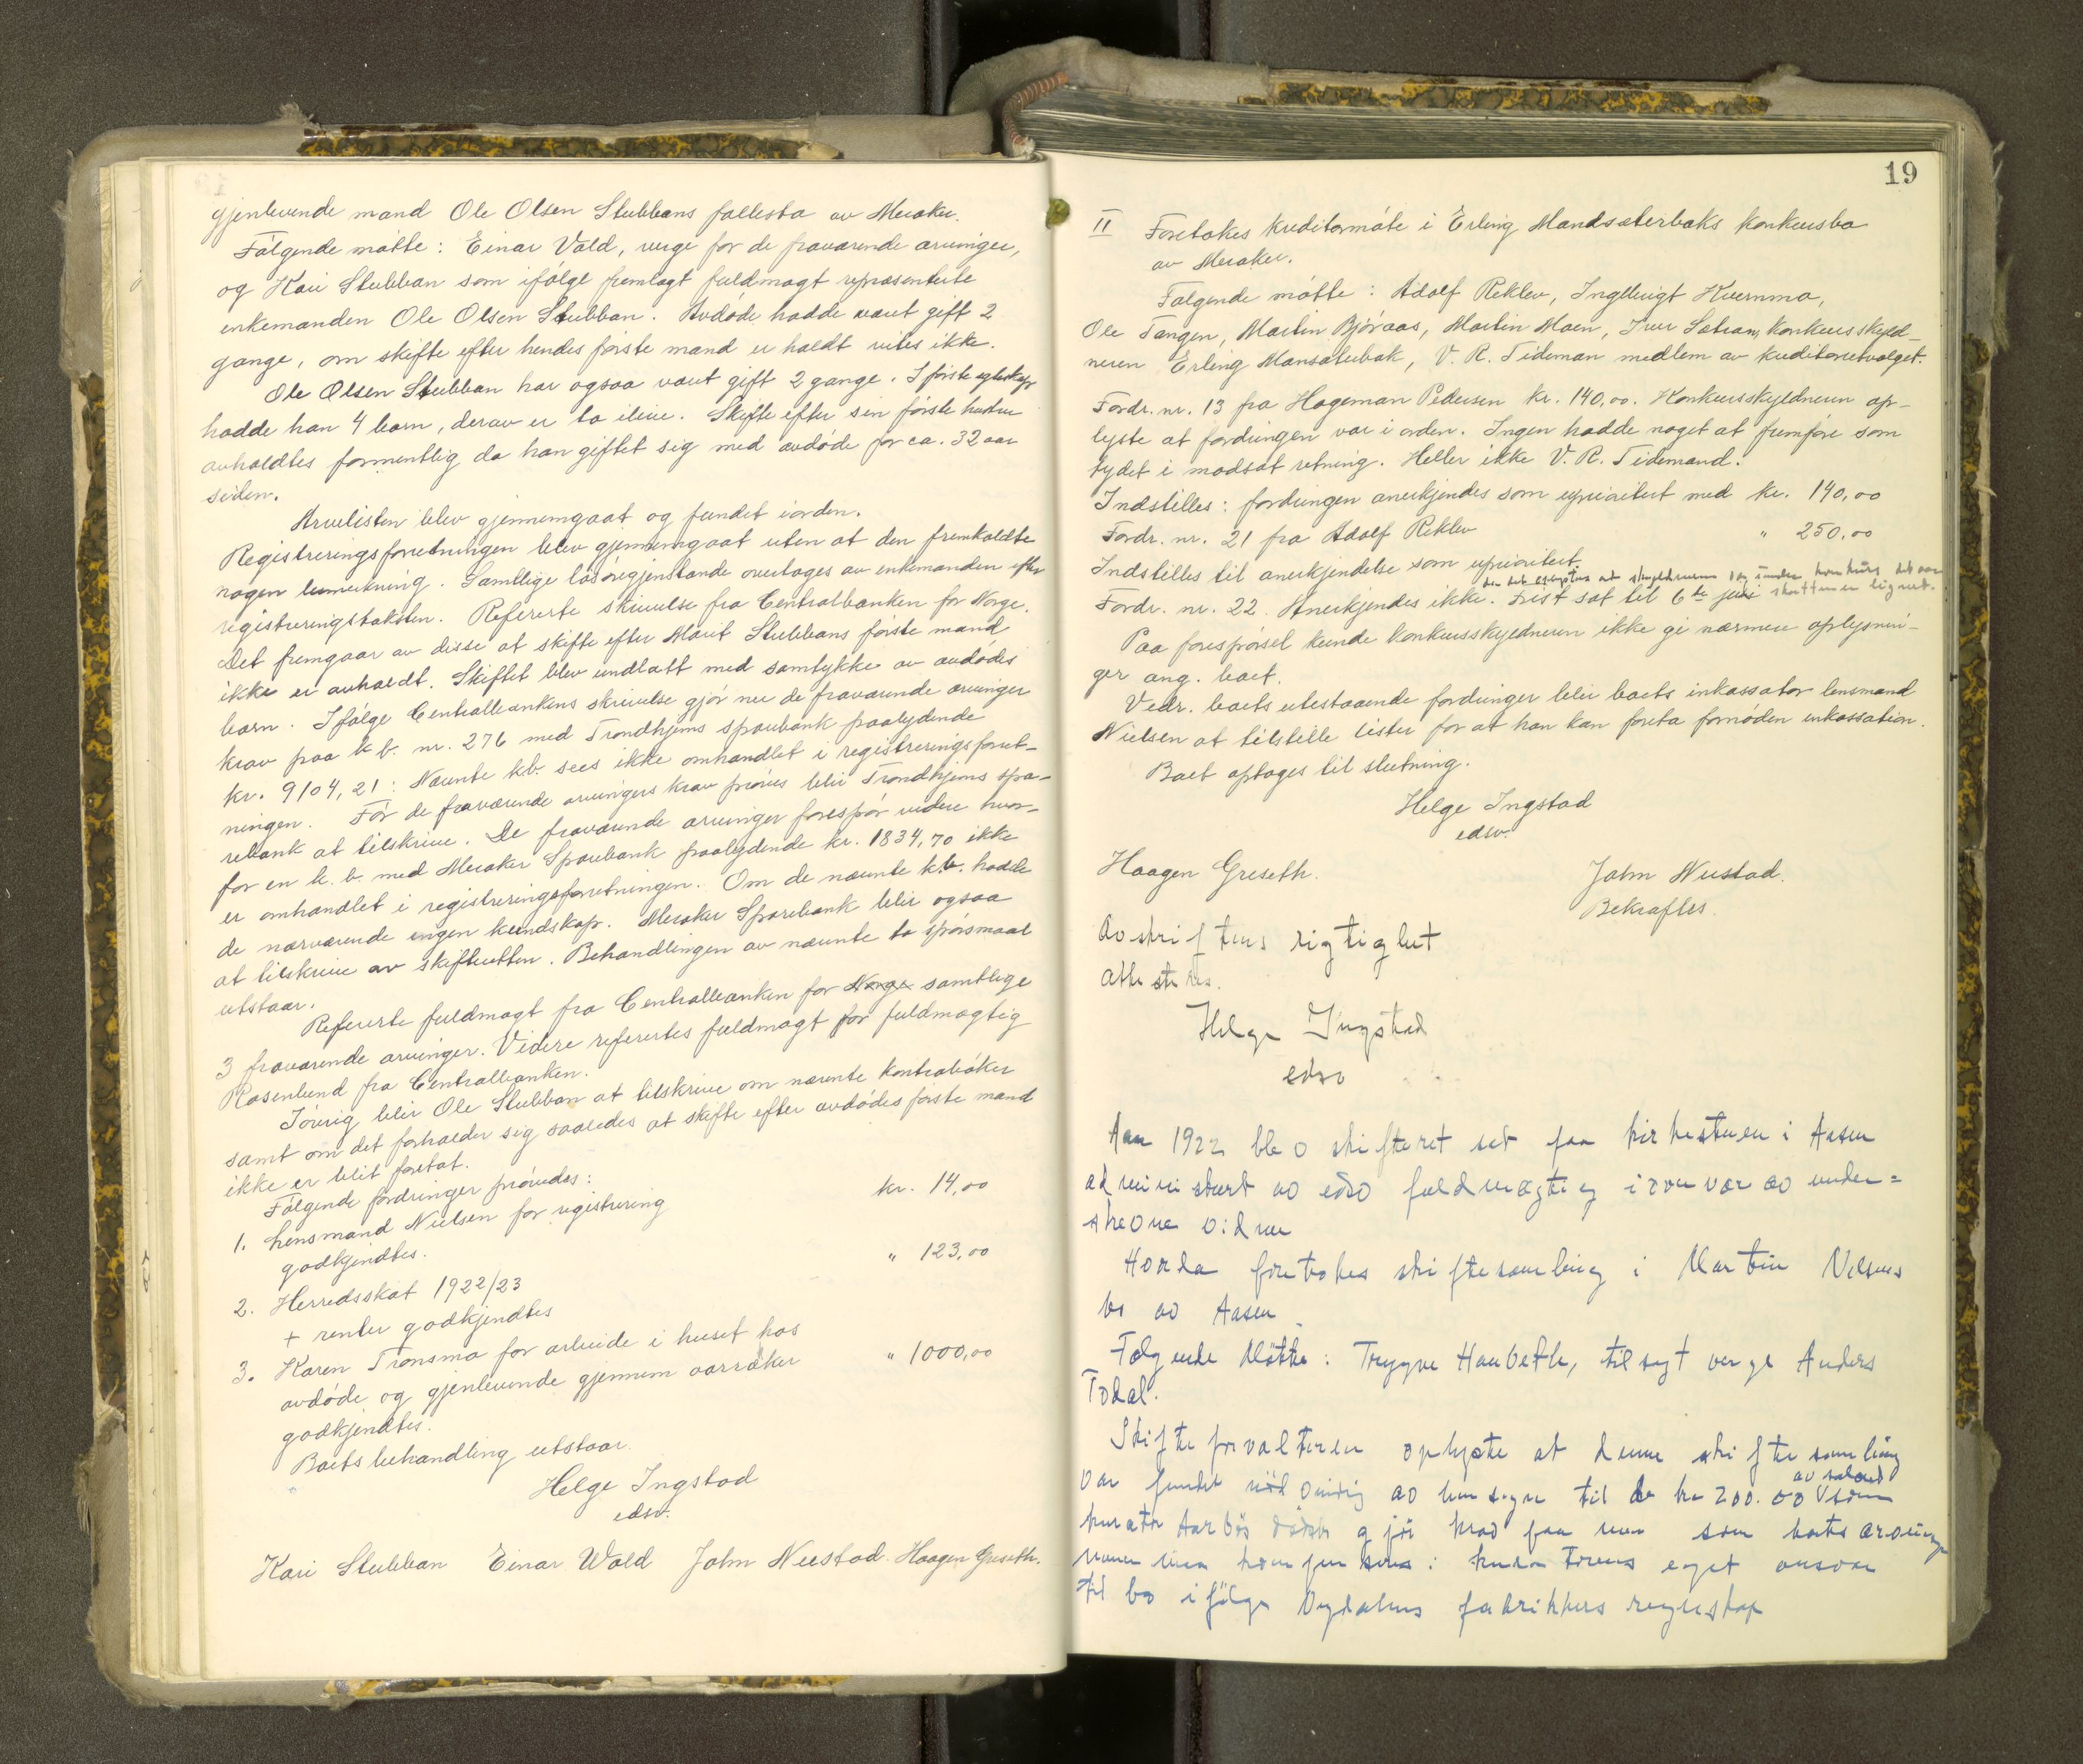 gjenlevende mand Ole Olsen Stubbans fællesbo av Meraker.
Følgende møtte: Einar Vold, verge for de fraværende arvinger,
og Kari Stubban som ifølge fremlagt fuldmagt repræsenterte
enkemanden Ole Olsen Stubban. Avdøde hadde været gift 2
gange, om skifte efter hendes første mand er holdt vites ikke.
Ole Olsen Stubban har ogsaa været gift 2 gange. I første egteskap
hadde han 4 barn, derav er to ilive. Skifte efter sin første hustru
avholdtes formentlig da han giftet sig med avdøde for ca. 32 aar
siden.
Arvelisten blev gjennemgaat og fundet iorden.
Registreringsforretningen blev gjennemgaat uten at den fremkaldte
nogen bemerkning. Samtlige løsøregjenstande overtages av enkemanden efter
registreringstaksten. Refererte skrivelse fra Centralbanken for Norge.
Det fremgaar av disse at skifte efter Marit Stubbans første mand
ikke er avholdt. Skiftet blev undlatt med samtykke av avdødes
barn. Ifølge Centralbankens skrivelse gjør nu de fraværende arvinger
krav paa k.b. nr. 276 med Trondhjems sparebank paalydende
kr. 9104,21: Nævnte kb. sees ikke omhandlet i registreringsforret-
ningen. Før de fraværende arvingers krav prøves blir Trondhjems spa-
rebank at tilskrive. De fraværende arvinger forespør videre hvor-
for en k.b. med Meraker Sparebank paalydende kr. 1834,70 ikke
er omhandlet i registreringsforretningen. Om de nævnte k.b. hadde
de nærværende ingen kundskap. Meraker Sparebank blir ogsaa
at tilskrive av skifteretten. Behandlingen av nævnte to spørsmaal
utstaar.
Refererte fuldmagt fra Centralbanken for Norge samtlige
3 fraværende arvinger. Videre referertes fuldmagt for fuldmægtig
Rosenlund fra Centralbanken.
Iøvrig blir Ole Stubban at tilskrive om nævnte kontrabøker
samt om det forholder sig saaledes at skifte efter avdødes første mand
ikke er blit foretat.
Følgende fordringer prøvedes:
1. Lensmand Nielsen for registrering kr. 14,00
godkjendtes.
2. Herredsskat 1922/23 " 123,00
+ renter godkjendtes
3. Karen Tronsmo for arbeide i huset hos
avdøde og gjenlevende gjennem aarræker " 1000,00
godkjendtes.
Boets behandling utstaar.
Helge Ingstad
edsv.
Kari Stubban Einar Wold John Neustad. Haagen Greseth.
19
II Foretokes kreditormøte i Erling Mandsæterbaks konkursbo
av Meraker.
Følgende møtte: Adolf Reklev, Ingebrigt Kvernmo,
Ole Tangen, Martin Bjøraas, Martin Moen, Iver Sætran, konkursskyld-
neren Erling Mansæterbak, V. R. Tideman medlem av kreditorutvalget.
Fordr. nr. 13 fra Hageman Pedersen kr. 140,00. Konkursskyldneren op-
lyste at fordringen var i orden. Ingen hadde noget at fremføre som
tydet i modsat retning. Heller ikke V. R. Tidemand.
Indstilles: fordringen anerkjendes som uprioritert med kr. 140,00
Fordr. nr. 21 fra Adolf Reklev " 250,00
Indstilles til anerkjendelse som uprioritert.
da det oplystes at skyldneren var under konkurs det aar
Fordr. nr. 22 Anerkjendes ikke. Frist sat til 6te juni skatten er lignet.
Paa forespørsel kunde konkursskyldneren ikke gi nærmere oplysnin-
ger ang. boet.
Vedr. boets utestaaende fordringer blir boets inkassator lensmand
Nielsen at tilstille lister for at han kan foreta fornøden inkassation.
Boet optages til slutning.
Helge Ingstad
edsv.
Haagen Greseth. John Neustad.
Bekræftes.
Avskriftens rigtighet
attesteres.
Helge Ingstad
edsv
Aar 1922 blev skifteret sat paa kirkestuen i Aasen
administrert av edsv fuldmægtig i overvær av under=
skrevne vidner
Horda foretokes skiftesamling i Martin Nelsens
bo av Aasen.
Følgende Møtte: Trygve Haubeth, tilsagt verge Anders
Todal.
Skifteforvalteren oplyste at denne skiftesamling
var fundet nødvendig av hensyn til de kr 200.00 av salæret som
kurator Aarbøs gjør krav paa som boets arving
kuratorens eget ansvar
til bo ifølge fabrikkers regnskap